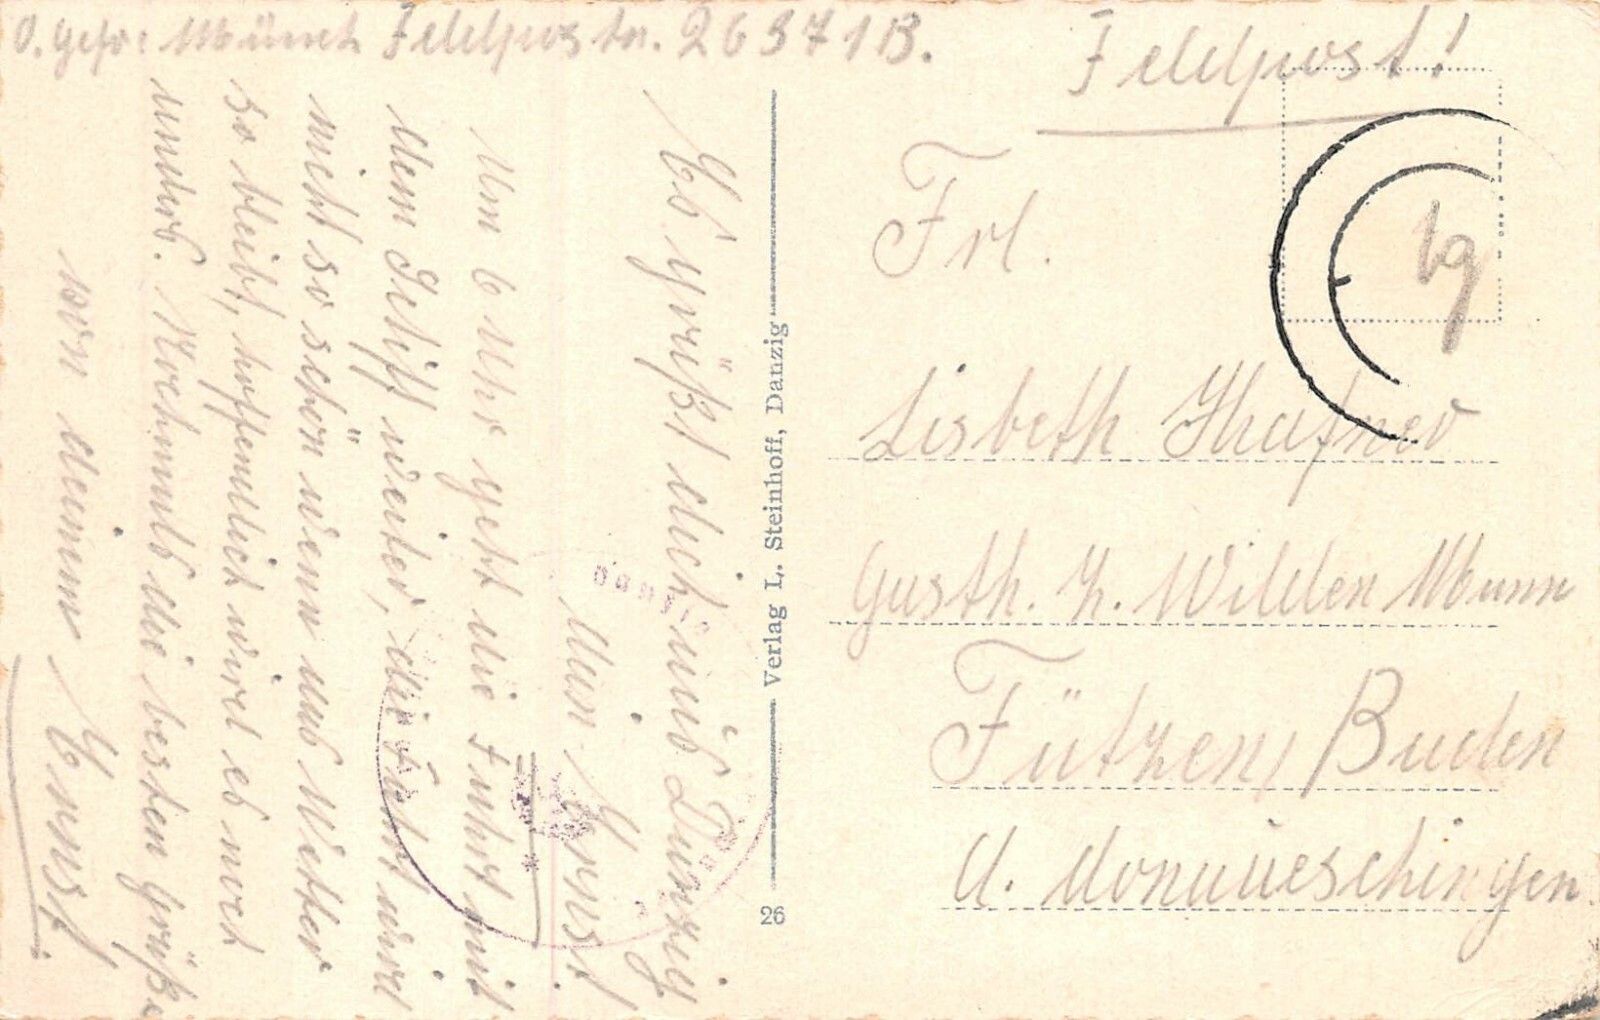 O. Gefr. Münch Feldpostn. 26371B.
Feldpost!
Es grüßt dich aus Danzig
Dein Ernst
Um 6 Uhr geht die Fahrt mit
dem Schiff weiter, die Fahrt wird
nicht so schön wenn das Wetter
so bleibt, hoffentlich wird es noch
anders. Nochmals die besten Grüße
von deinem Ernst.
Verlag L. Steinhoff, Danzig
26
Frl.
Lisbeth
Gasth. z. Wilden Mann
Fützen, Baden
A. Donaueschingen